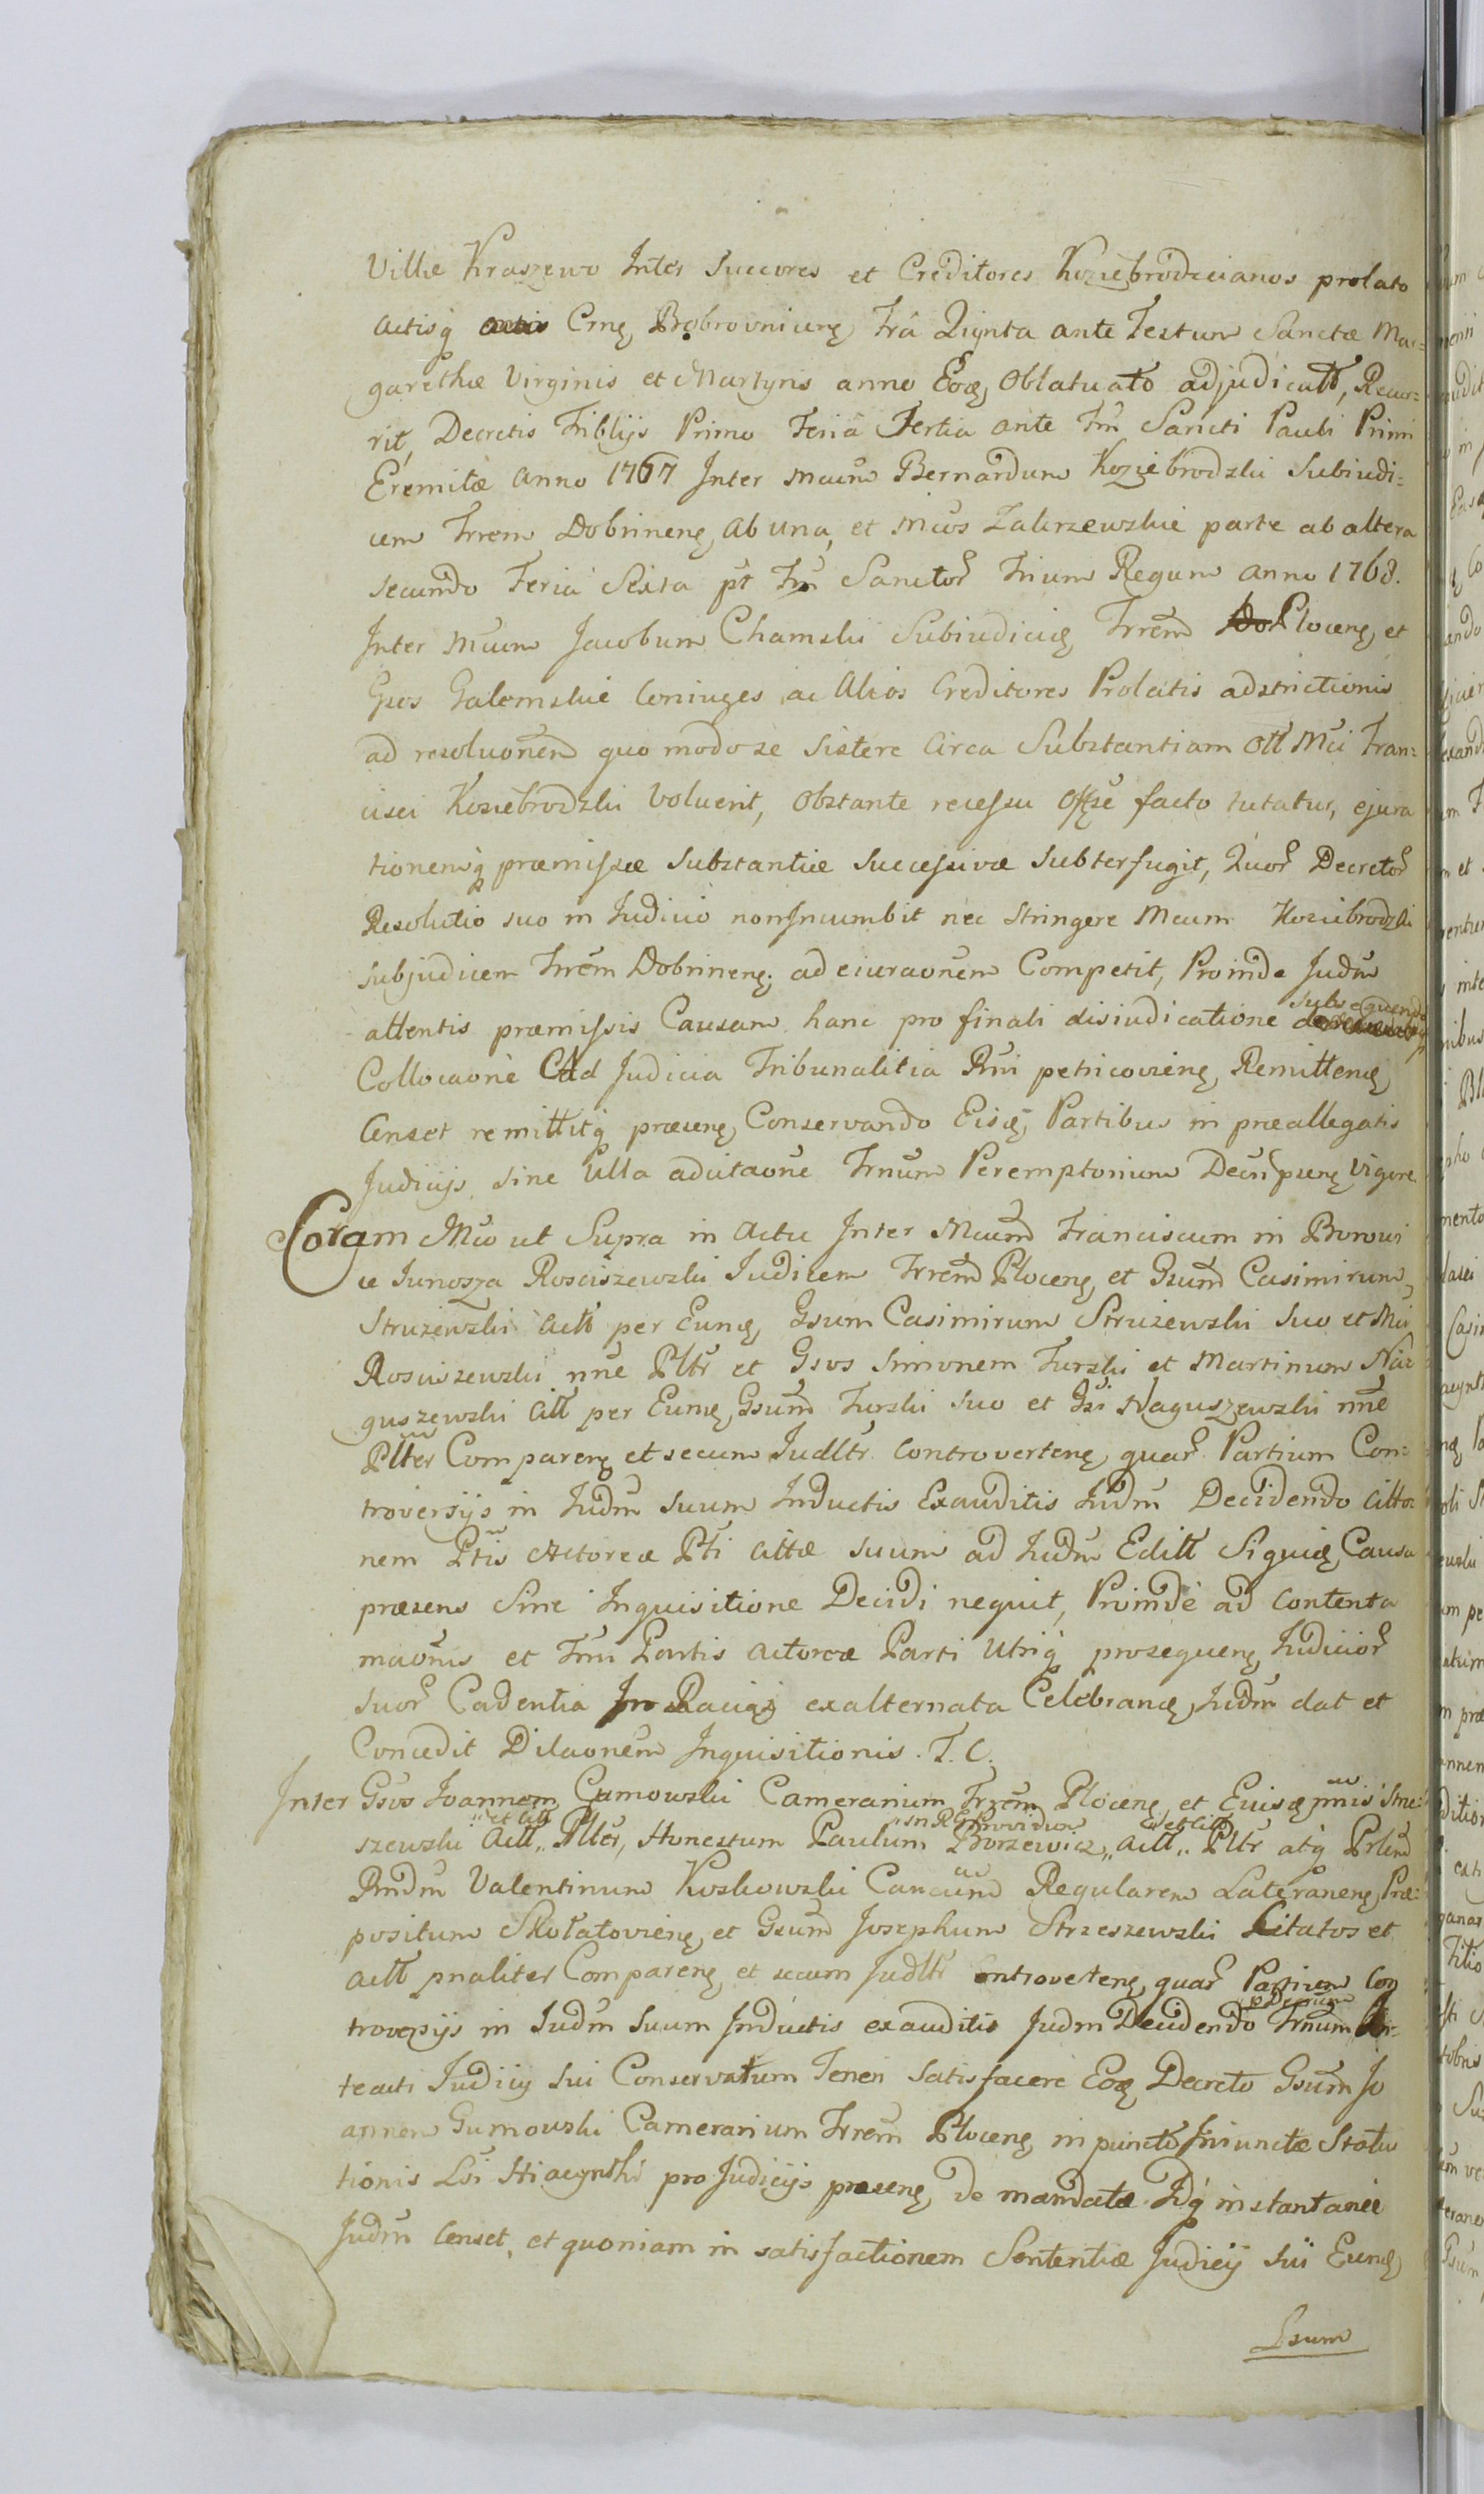 Villæ Kraszewo Inter Succores et Creditores Koziebrodzcianos prolato
actisq́ Crnę Bobrovnicenę Fra Qúinta ante Festum Sanctæ Mar=
garethæ Virginis et Martyris anno Eoꝗ Oblatuato adjudicatt, Recur=
rit, Decretis Triblijs Primo Feria Tertia ante Fm̃ Sancti Pauli Primi
Eremitæ anno 1767 Inter Mcum Bernardum Koziebrodzki Subiudi=
cem Trrem Dobrinenę, ab una, et Mcos Zakrzewskie parte ab altera
secundo Feria Sexta pt Fm̃ Sanctor̃ Trium Regum anno 1768.
Inter Mcum Jacobum Chamski Subiudicię Trrem̃ Plocenę, et
Gsos Galemskie Coniuges ac Alios Creditores Prolatis adstrictionis
ad resoluõnem quo modo se sistere Circa Substantiam Ott Mci Fran=
cisci Koziebrodzki Voluerit, Obstante recessu Offse facto tutatur, ejura
tionemq́ præmissæ Substantiæ Successivæ Subterfugit, Quor̃ Decretor̃
Resolutio suo in Judicio non Incumbit nec Stringere Mcum Koziebrodzki
subjudicem Trrem̃ Dobrinenę ad eiuraõnem Competit, Proinde Judm̃
attentis præmissis Causam hanc pro finali disiudicatione subsequenda
Collocaõne Ad Judicia Tribunalitia Rni petricovienę, Remittenę
Censet remittitq́ præsenę, Conservando Eisꝗ Partibus in præallegatis
Judicijs, sine Ulla adcitaõne Trnum Peremptorium Decri psenę Vigore.
Coram Mco ut Supra in Actu Inter Mcum̃ Franciscum in Borowi
ce Junosza Rosciszewski Judicem Trrem̃ Plocenę, et Gsum̃ Casimirum
Struzewski Actt per Eunꝗ Gsum Casimirum Struzewski suo et Mci
Rosciszewski nñe Pltr et Gsos Simonem Turski et Martinum Na
guszewski Citt per Eumꝗ Gsum̃ Turski suo et Gsi Naguszewski nñe
Plter Comparenę et secum Judltr Controvertenę, quar̃ Partium Con=
troversijs in Judm̃ suum Inductis Exauditis Judm̃ Decidendo Citto=
nem Ptis Actoreæ Pti Cittæ suum ad Judm̃ Editt Siquię, Causa
præsens Sine Inquisitione Decidi nequit, Proinde ad Contenta
maõnis et Trni Partis Actoreæ Parti Utriq́ prosequenę Judicior̃
suor̃ Cadentia In Raciąż exalternata Celebranę, Judm̃ dat et
Concedit Dilaõnem Inquisitionis. T. C.
Inter Gsos Joannem Gumowski Camerarium Trrem̃ Plocenę, et Eiusꝗ pnis Strze=
szewski Actt et Citt Plter, Honestum Paulum Borzewicz Actt et Citt Pltr atq́ Prlem
Rndm̃ Valentinum Koskowski Canoum̃ Regularem Lateranenę Præ=
positum Skołatovienę, et Gsum̃ Josephum Strzeszewski Citatos et
actt pnaliter Comparenę et secum Judltr Controvetenę, quar̃ Partium Con
troversijs in Judm̃ Suum Inductis exauditis Judm Decidendo Trnum
teacti Judicij Sui Conservatum Teneri Satisfacere Eoꝗ Decreto Gsum̃ Jo
annem Gumowski Camerarium Trrem̃ Plocenę, in puncto Iniunctæ Statu
tionis Lsi Hiacynthi pro Judicijs præsenę, de mandatæ. Idq́ instantanee
Judm̃ Censet, et quoniam in satisfactionem Sententiæ Judicij Sui Eunꝗ
Lsum